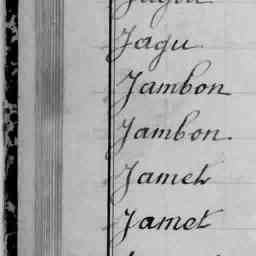 Jagu
Jambon
Jambon.
Jameh
Jamet